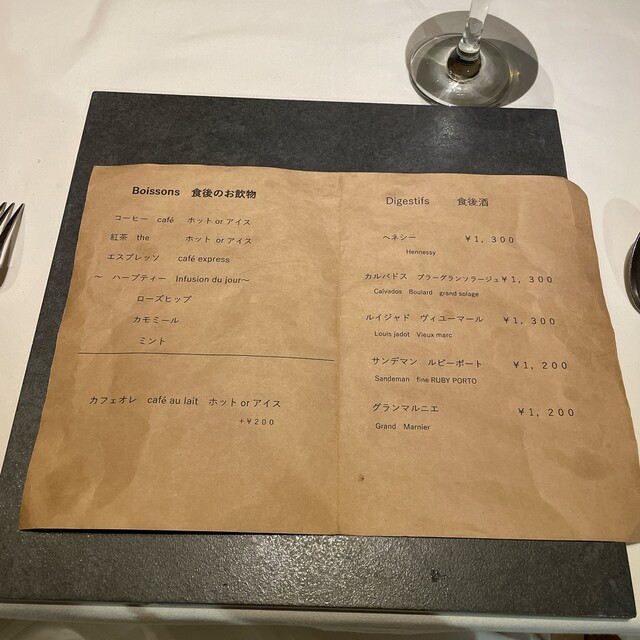 Boissons 食後のお飲物
コーヒー café ホット or アイス
紅茶 the ホット or アイス
エスプレッソ café express
～ ハーブティー Infusion du jour～
ローズヒップ
カモミール
ミント
カフェオレ café au lait ホット or アイス
+￥200
Digestifs 食後酒
ヘネシー ￥1,300
Hennessy
カルバドス ブラーグランソラージュ￥1,300
Calvados Boulard grand solage
ルイジャド ヴィエーマール ￥1,300
Louis jadot Vieux marc
サンデマン ルビーポート ￥1,200
Sandeman fine RUBY PORTO
グランマルニエ ￥1,200
Grand Marnier